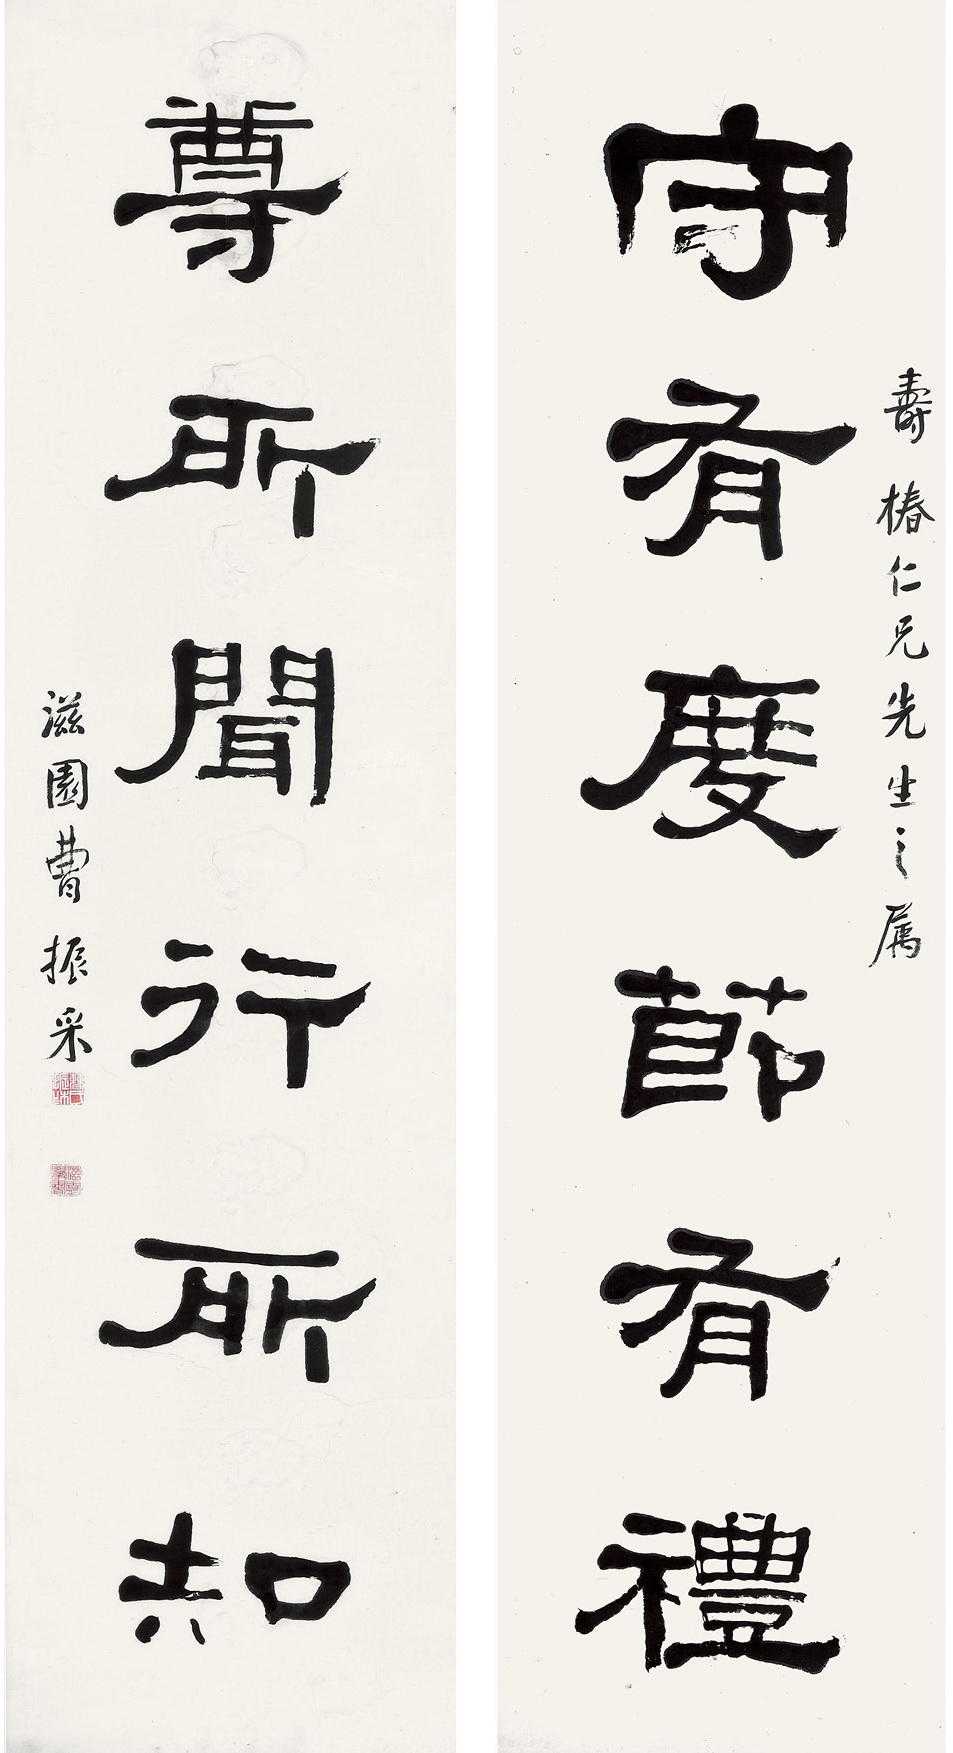 壽椿仁兄先生之属
守有度節有禮
尊所聞行所知
滋園曹振采